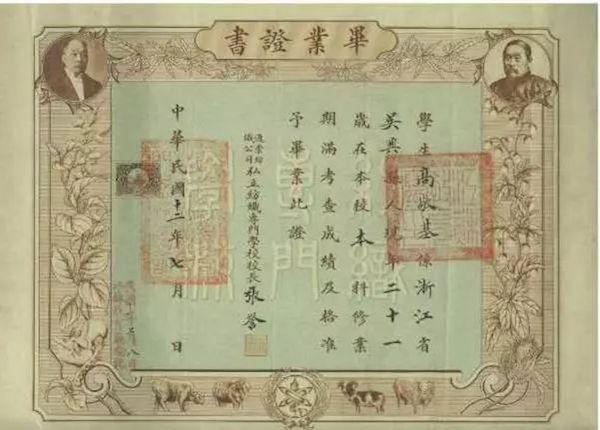 畢業證書
學生高敬基係浙江省
吳興縣人現年二十一
歲在本校本科修業
期滿考查成績及格准
予畢業此證
織公司私立紡織專門學校校長張詧
中華民國十二年七月 日